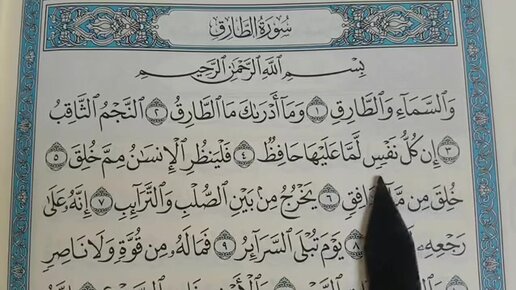 سُورَةُ الطَّارِقِ
بِسْمِ اللَّهِ الرَّحْمَٰنِ الرَّحِيمِ
وَالسَّمَاءِ وَالطَّارِقِ ١ وَمَا أَدْرَىٰكَ مَا الطَّارِقُ ٢ النَّجْمُ الثَّاقِبُ
٣ إِن كُلُّ نَفْسٍ لَّمَّا عَلَيْهَا حَافِظٌ ٤ فَلْيَنظُرِ الْإِنسَٰنُ مِمَّ خُلِقَ ٥
خُلِقَ مِن ٦ يَخْرُجُ مِنۢ بَيْنِ الصُّلْبِ وَالتَّرَائِبِ ٧ إِنَّهُ عَلَىٰ
رَجْعِهِ ٨ يَوْمَ تُبْلَى السَّرَائِرُ ٩ فَمَا لَهُ مِن قُوَّةٍ وَلَا نَاصِرٍ